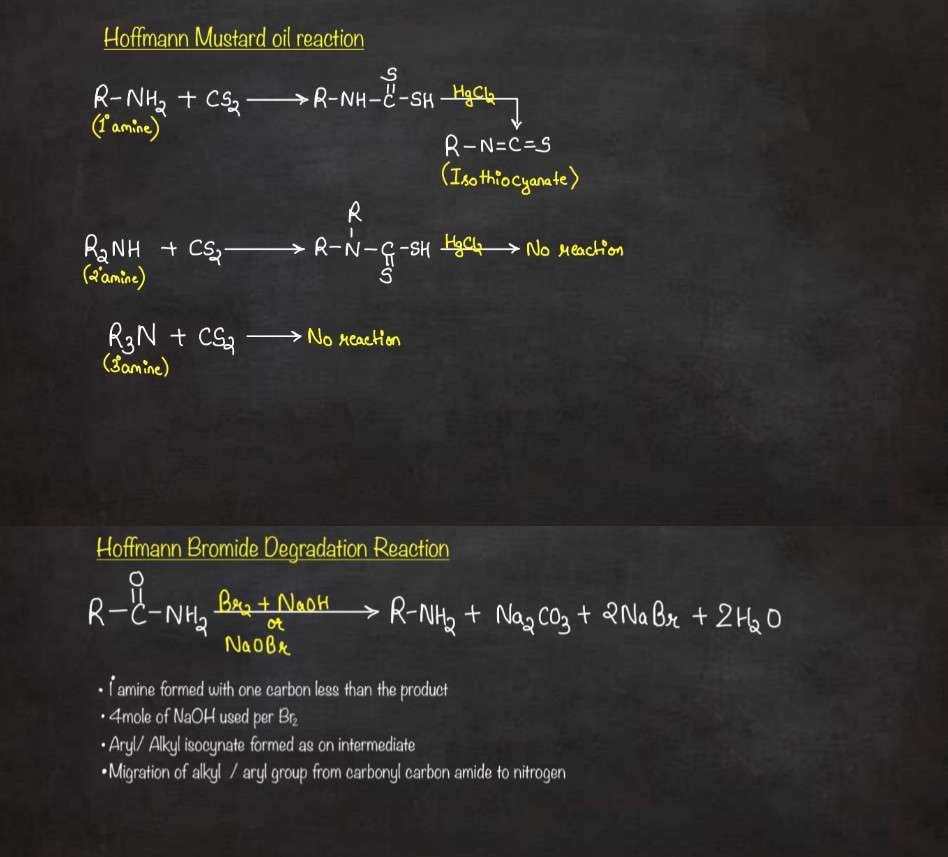 Hoffmann Mustard oil reaction
S
R-NH₂ + CS₂ ⟶ R-NH-C-SH HgCl₂
(1° amine)
R-N=C=S
(Isothiocyanate)
R
R₂NH + CS₂ ⟶ R-N-C-SH HgCl₂ ⟶ No reaction
(2° amine)
S
R₃N + CS₂ ⟶ No reaction
(3° amine)
Hoffmann Bromide Degradation Reaction
O
R-C-NH₂ Br₂ + NaOH ⟶ R-NH₂ + Na₂CO₃ + 2NaBr + 2H₂O
or
NaOBr
• 1° amine formed with one carbon less than the product
• 4mole of NaOH used per Br₂
• Aryl/ Alkyl isocynate formed as on intermediate
• Migration of alkyl / aryl group from carbonyl carbon amide to nitrogen